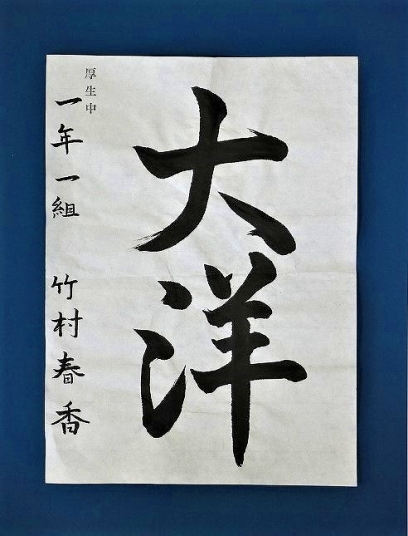 大洋
厚生中
一年一組 竹村春香